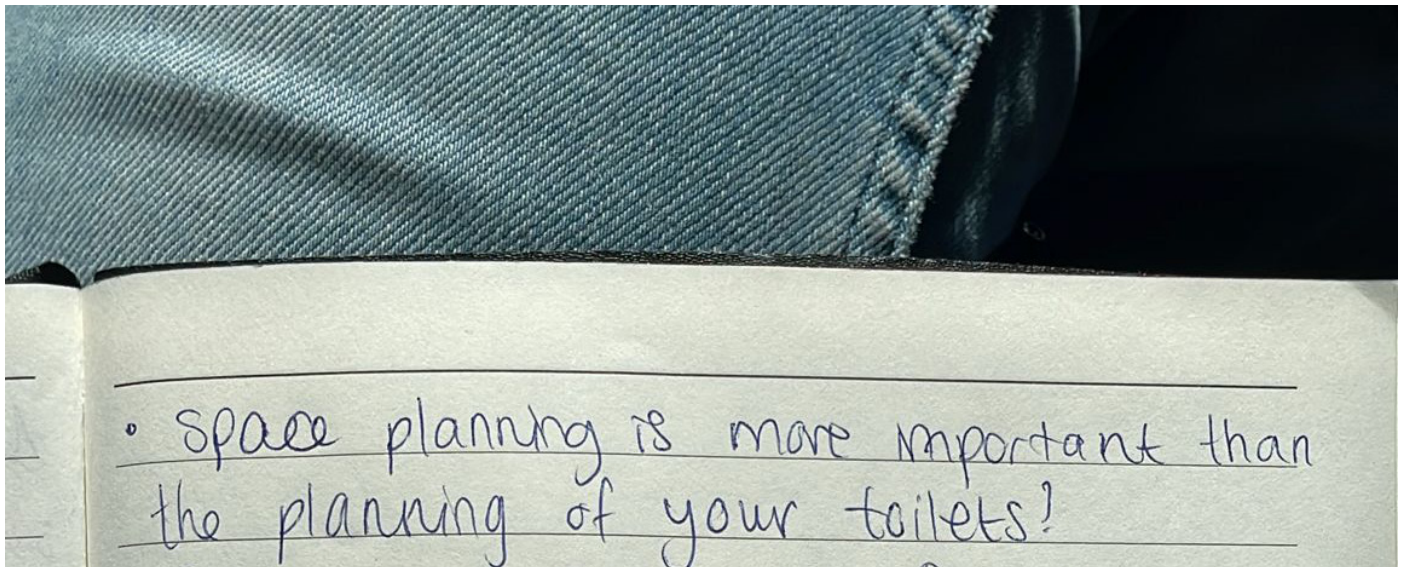 • Space planning is more important than
the planning of your toilets!